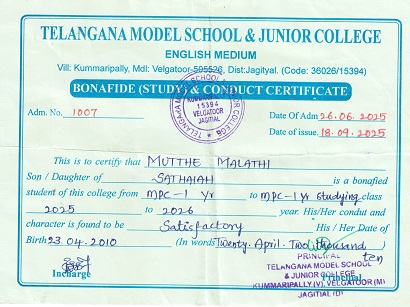 TELANGANA MODEL SCHOOL & JUNIOR COLLEGE
ENGLISH MEDIUM
Vill: Kummaripally, Mdl: Velgatoor-505526, Dist:Jagityal. (Code: 36026/15394)
BONAFIDE (STUDY) & CONDUCT CERTIFICATE
Adm. No. 1007
Date Of Adm 26.06.2025
Date of issue. 18.09.2025
TELANGANA MODEL SCHOOL JUNIOR COLLEGE
KUMMARIPALLY
15394
VELGATOOR
JAGITIAL
This is to certify that MUTTHE MALATHI
Son / Daughter of SATHAIAH is a bonafied
student of this college from MPC-1 yr to MPC-1 yr studying class
2025 to 2026 year. His/Her condut and
character is found to be Satisfactory His / Her Date of
Birth 23.04.2010 (In words Twenty. April. Two thousand
ten
Incharge
Principal
PRINCIPAL
TELANGANA MODEL SCHOOL
& JUNIOR COLLEGE
KUMMARIPALLY (V), VELGATOOR (M)
JAGITIAL (D)